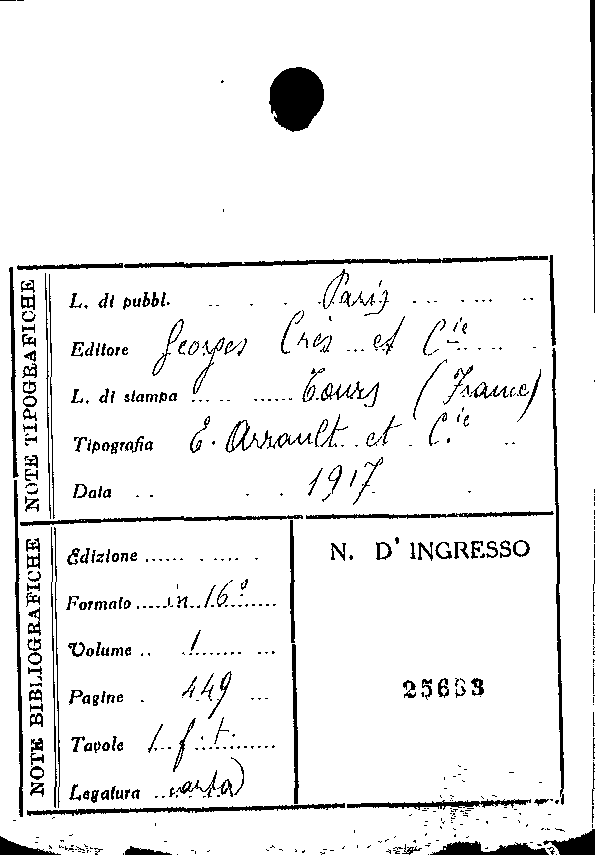 NOTE TIPOGRAFICHE
L. di pubbl. Paris
Editore Georges Crès et Cie
L. di stampa Tours (France)
Tipografia E. Arrault et C.ie
Data 1917
NOTE BIBLIOGRAFICHE
Edizione
Formato in 16º
Volume 1
Pagine 449
Tavole 1 f. t.
Legatura carta
N. D' INGRESSO
25663